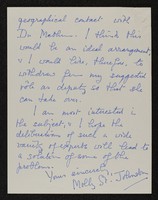 geographical contact with
Dr Mathew. I think this
would be an ideal arrangement,
& I would like, therefore, to
withdraw from my suggested
role as deputy so that she
can take over.
I am most interested in
the subject, & I hope the
deliberations of such a wide
variety of experts will lead to
a solution of some of the
problems.
Yours sincerely,
Molly St. Johnston